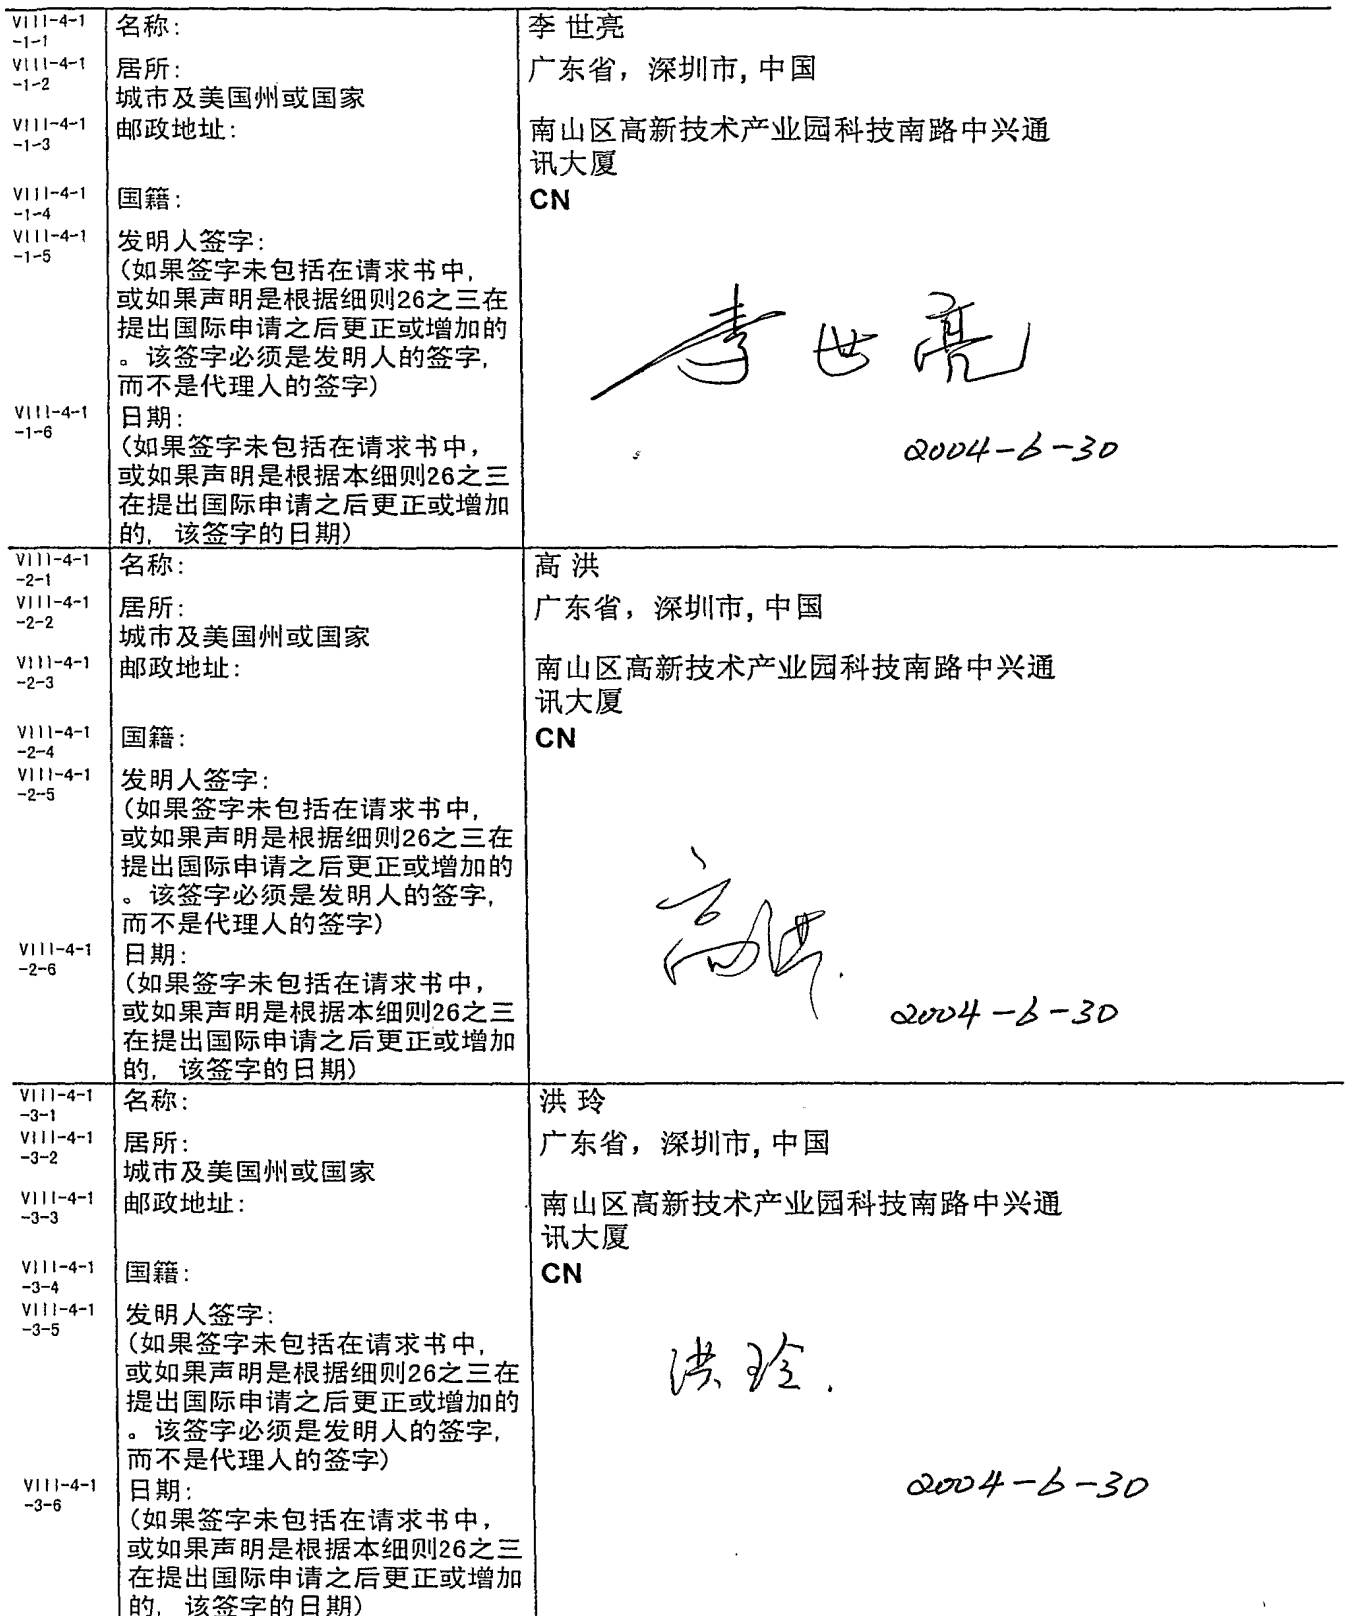 VIII-4-1-1-1 名称: 李 世亮
VIII-4-1-1-2 居所: 广东省，深圳市, 中国
城市及美国州或国家
VIII-4-1-1-3 邮政地址: 南山区高新技术产业园科技南路中兴通
讯大厦
VIII-4-1-1-4 国籍: CN
VIII-4-1-1-5 发明人签字:
(如果签字未包括在请求书中,
或如果声明是根据细则26之三在
提出国际申请之后更正或增加的
。该签字必须是发明人的签字,
而不是代理人的签字)
李世亮
VIII-4-1-1-6 日期:
(如果签字未包括在请求书中，
或如果声明是根据本细则26之三
在提出国际申请之后更正或增加
的, 该签字的日期)
2004-6-30
VIII-4-1-2-1 名称: 高 洪
VIII-4-1-2-2 居所: 广东省，深圳市, 中国
城市及美国州或国家
VIII-4-1-2-3 邮政地址: 南山区高新技术产业园科技南路中兴通
讯大厦
VIII-4-1-2-4 国籍: CN
VIII-4-1-2-5 发明人签字:
(如果签字未包括在请求书中,
或如果声明是根据细则26之三在
提出国际申请之后更正或增加的
。该签字必须是发明人的签字,
而不是代理人的签字)
高洪
VIII-4-1-2-6 日期:
(如果签字未包括在请求书中，
或如果声明是根据本细则26之三
在提出国际申请之后更正或增加
的, 该签字的日期)
2004-6-30
VIII-4-1-3-1 名称: 洪 玲
VIII-4-1-3-2 居所: 广东省，深圳市, 中国
城市及美国州或国家
VIII-4-1-3-3 邮政地址: 南山区高新技术产业园科技南路中兴通
讯大厦
VIII-4-1-3-4 国籍: CN
VIII-4-1-3-5 发明人签字:
(如果签字未包括在请求书中,
或如果声明是根据细则26之三在
提出国际申请之后更正或增加的
。该签字必须是发明人的签字,
而不是代理人的签字)
洪玲.
VIII-4-1-3-6 日期:
(如果签字未包括在请求书中，
或如果声明是根据本细则26之三
在提出国际申请之后更正或增加
的, 该签字的日期)
2004-6-30